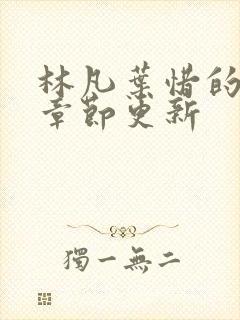 林凡葉惜的
章節更新
獨一無二